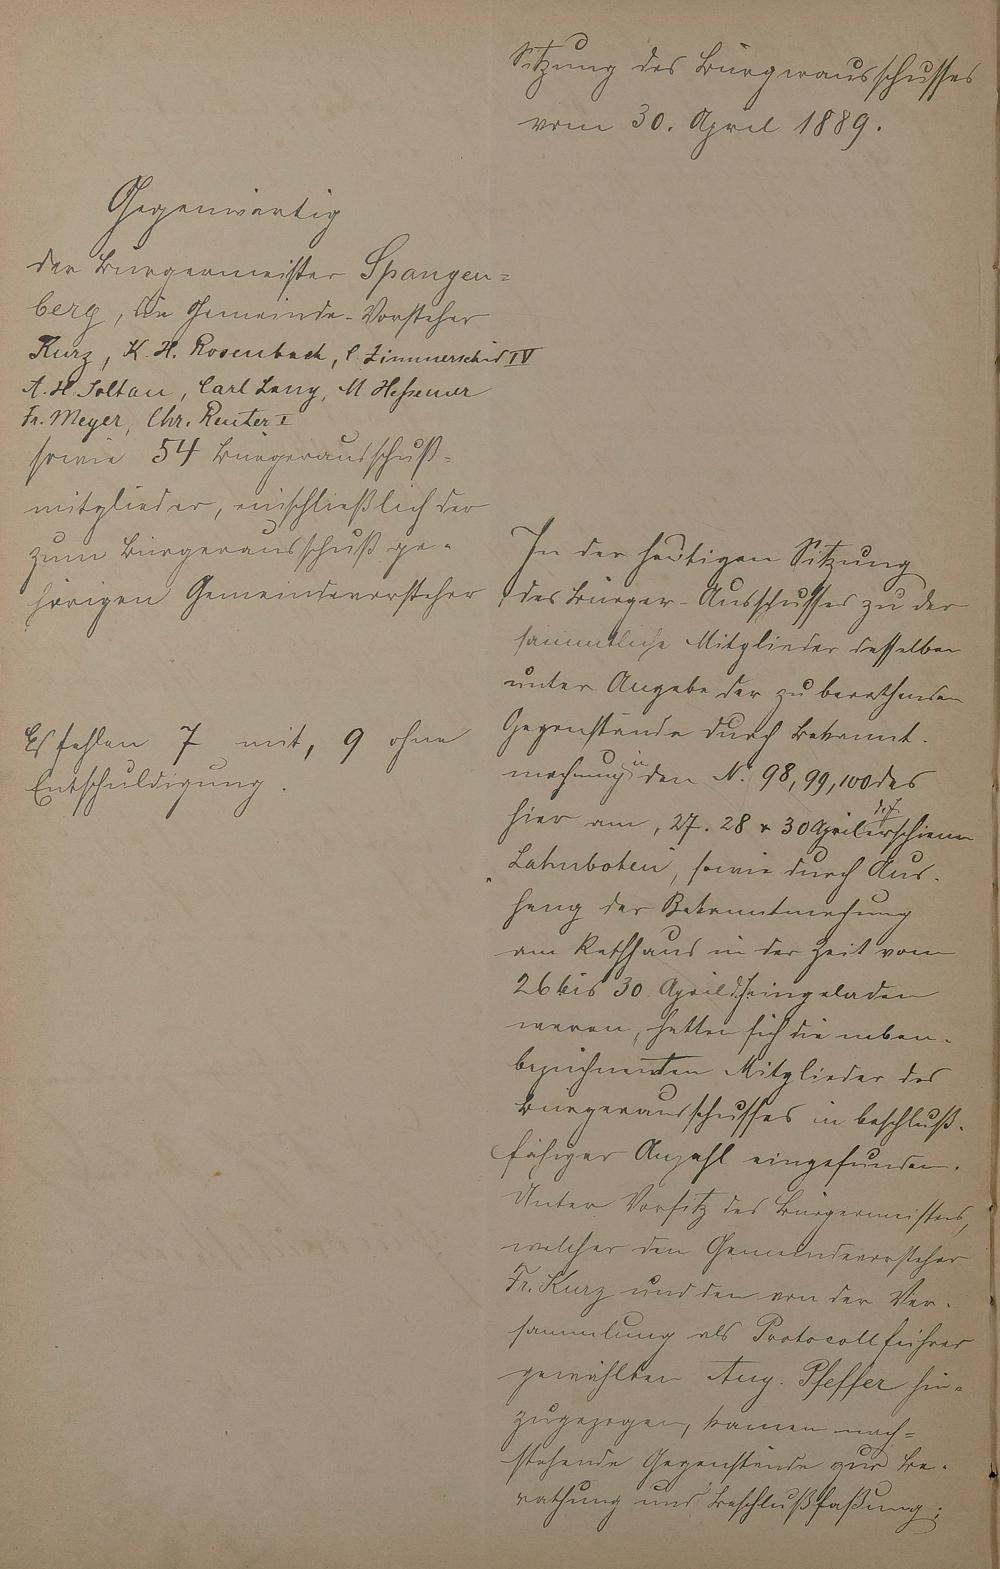 Sitzung des Bürgerausschusses
vom 30. April 1889.
Gegenwärtig
der Bürgermeister Spangen=
berg, die Gemeinde-Vorsteher
Kurz, K. H. Rosenbach, C. Zimmerschied IV
A. H. Soltau, Carl Lang, M. Heßemer
Fr. Meyer, Chr. Reuter I
sowie 54 Bürgerausschuß-
mitglieder, einschließlich der
zum Bürgerausschuß ge-
hörigen Gemeindevorsteher
Es fehlen 7 mit, 9 ohne
Entschuldigung.
In der heutigen Sitzung
des Bürger-Ausschusses zu der
sämmtliche Mitglieder desselben
unter Angabe der zu berathenden
Gegenstände durch Bekannt-
machung in den N. 98, 99, 100 des
hier am, 27. 28 & 30 April d. J. erschienen
Lahnboten, sowie durch Aus-
hang der Bekanntmachung
am Rathhaus in der Zeit vom
26 bis 30 April d. J. eingeladen
waren, hatten sich die neben-
bezeichneten Mitglieder des
Bürgerausschusses in beschluß-
fähiger Anzahl eingefunden.
Unter Vorsitz des Bürgermeisters,
welcher den Gemeindevorsteher
Fr. Kurz und den von der Ver-
sammlung als Protocollführer
gewählten Aug. Pfeffer hin-
zugezogen, kamen nach=
stehende Gegenstände zur Be-
rathung und Beschlußfaßung;